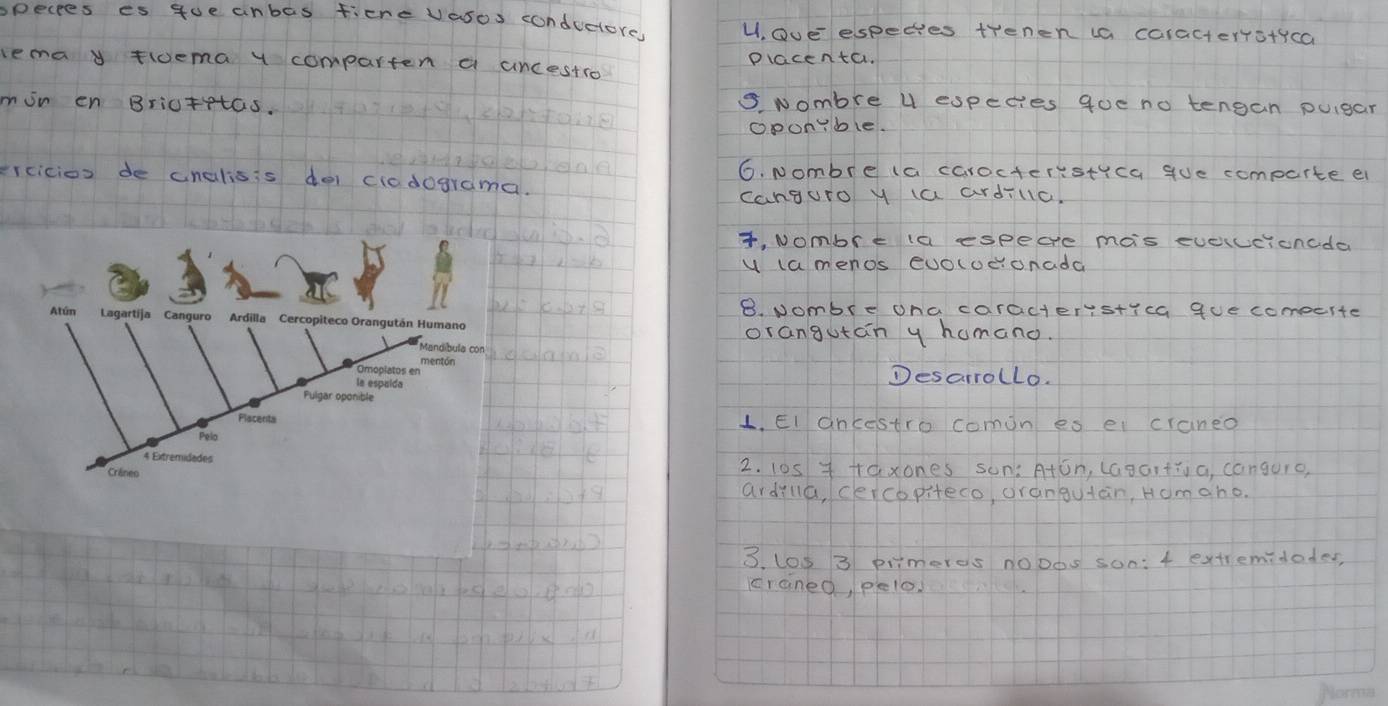 es que anbas tiene vasos conductores
y floema y comparten a ancestro
en Briofitas.
de analisis del cladograma.
Atún Lagartija Canguro Ardilla Cercopiteco Orangután Humano
Mandíbula con
mentón
Omoplatos en
la espalda
Pulgar oponible
Placenta
Pelo
4 Extremidades
Cráneo
4. Que especies tienen la caracteristica
placenta.
5. Nombre 4 especies que no tengan pulgar
oponible.
6. Nombre la caracteristica que comparte el
canguro y la ardilla.
7. Nombre la especie más evolucionada
y la menos evolucionada
8. Nombre una caracteristica que comparte
orangután y humano.
Desarrollo.
1. El ancestro común es el craneo
2. los 7 taxones son: Atún, Lagartija, canguro,
ardilla, cercopiteco, orangután, Humano.
3. los 3 primeros nodos son: 4 extremidades,
craneo, pelo.
Norma